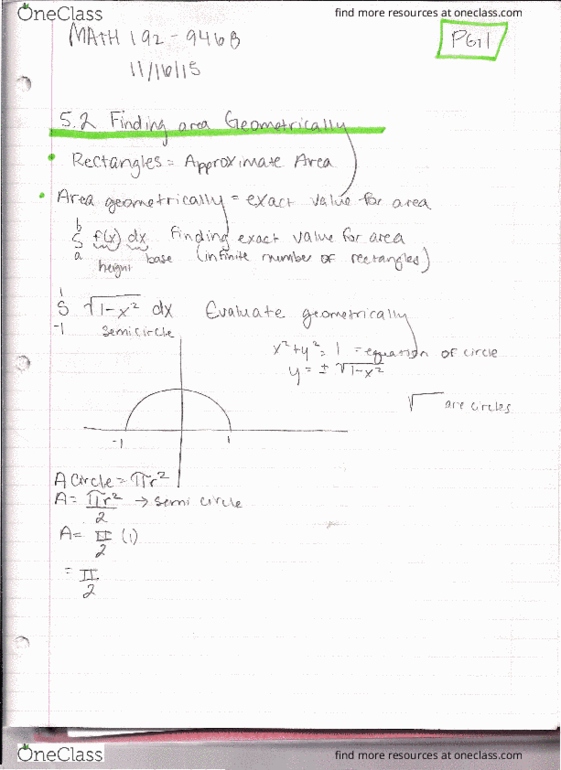 OneClass
find more resources at oneclass.com
MATH 192 - 946B
PG.1
11/16/15
5.2 Finding area Geometrically
• Rectangles = Approximate Area
• Area geometrically = exact value for area
b
∫ f(x) dx Finding exact value for area
a height base (infinite number of rectangles)
1
∫ √1-x² dx Evaluate geometrically
-1 semicircle
x²+y²=1 = equation of circle
y = ± √1-x²
√ are circles
-1 1
A Circle = πr²
A = πr²/2 → semi circle
A = π/2 (1)
= π/2
OneClass
find more resources at oneclass.com